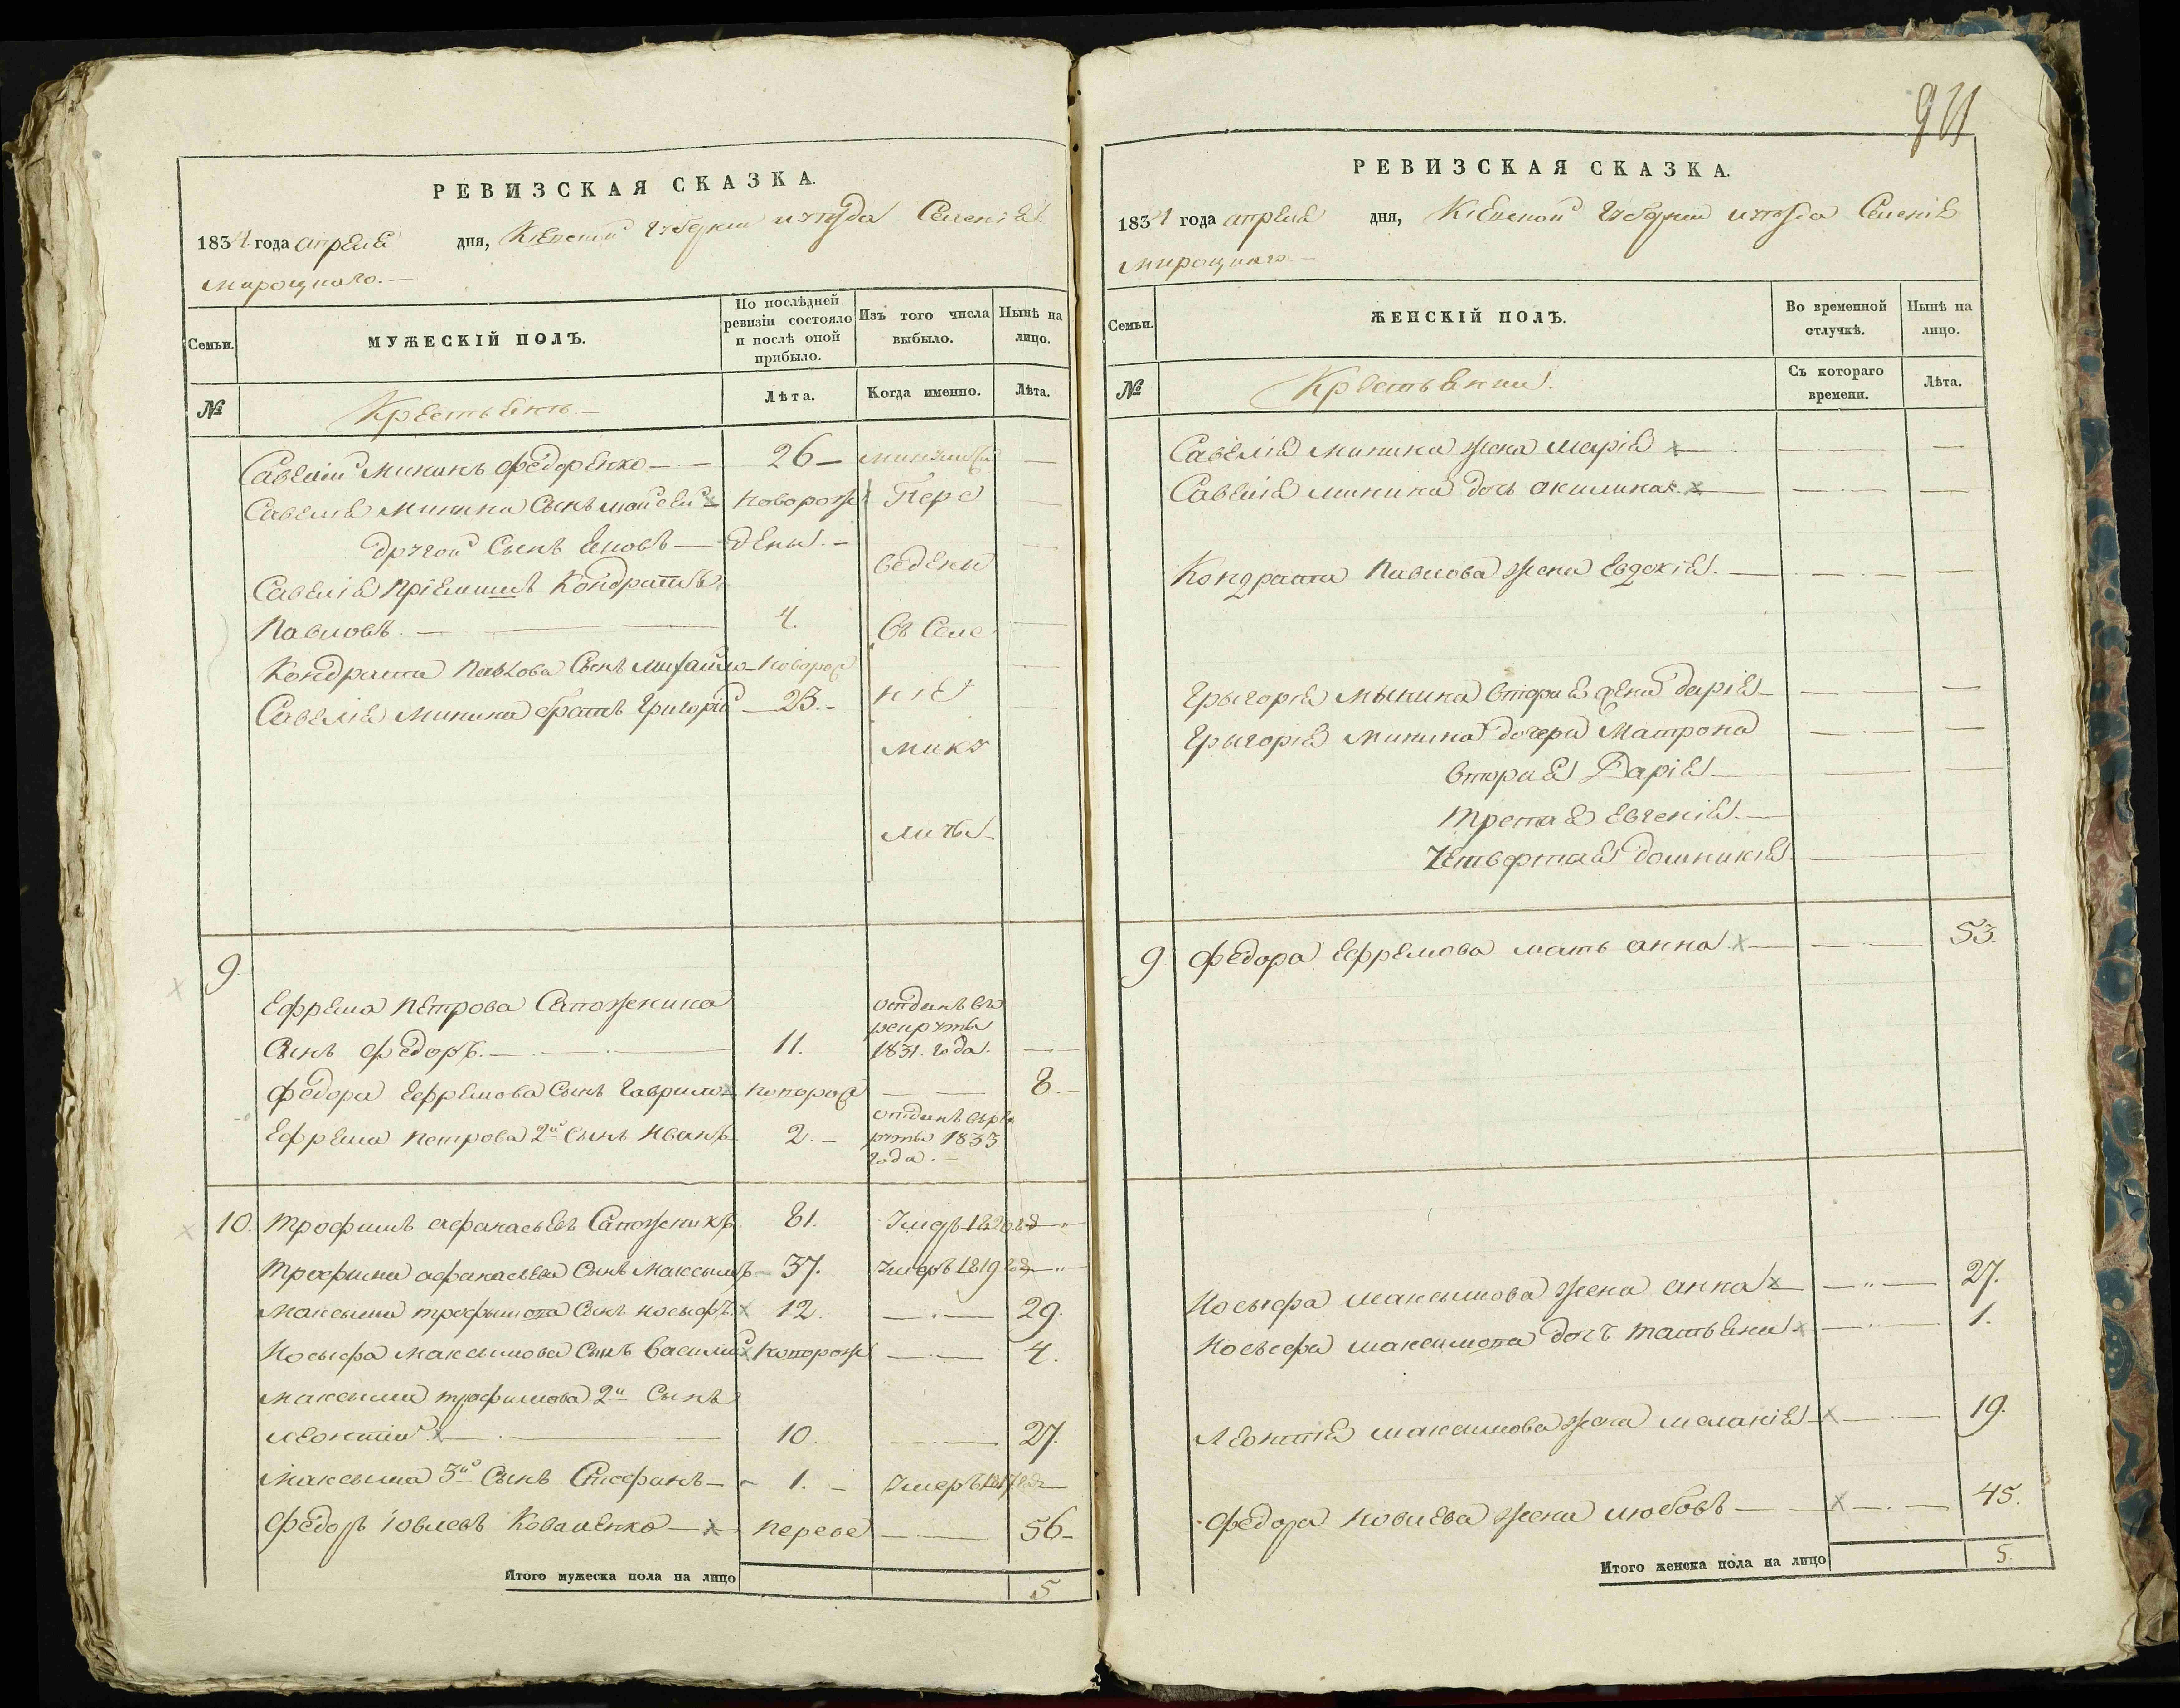 РЕВИЗСКАЯ СКАЗКА.
1834 года апреля дня, Кіевской Губерніи и уезда Селенія
Мироцкаго. —
Семьи.
МУЖЕСКІЙ ПОЛЪ.
По послѣдней ревизіи состояло и послѣ оной прибыло.
Изъ того числа выбыло.
Нынѣ на лицо.
№
Крестьянъ. —
Лѣта.
Когда именно.
Лѣта.
Савелій Мининъ Федоренко — 26 —
Савелія Минина Сынъ Мойсей х новорож Пере
другой Сынъ Яковъ — дены. —
ведены
Савелія пріемишъ Кондратъ
Павловъ. — 4. Въ Селе
Кондрата Павлова Сынъ Михайло — новорож
Савелія Минина братъ Григорій — 23. — ніе
Мику
личи
9.
Ефрема Петрова Сапожника отданъ въ
рекруты
Сынъ Федоръ. — 11. 1831. года. —
Федора Ефремова Сынъ Гаврило х новорож — 8. —
Ефрема Петрова 2й Сынъ Иванъ 2. — отданъ въ рек
руты 1833
года. —
10. Трофимъ Афанасьевъ Сапожникъ 81. Умеръ 1820 год
Трофима Афанасьева Сынъ Максымъ — 37. Умеръ 1819 год
Максыма Трофымова Сынъ Иосыфъ. х 12. — 29.
Иосыфа Максимова Сынъ Василий х новорож — 4.
Максыма Трофимова 2й Сынъ
Леонтий х — 10 — 27.
Максыма 3й Сынъ Стефанъ — 1. — Умеръ 1817 год
Федоръ Іовлевъ Коваленко — х перевед — 56 —
Итого мужеска пола на лицо 5
РЕВИЗСКАЯ СКАЗКА.
1834 года апреля дня, Кіевской Губерніи и уезда Селенія
Мироцкаго —
Семьи.
ЖЕНСКІЙ ПОЛЪ.
Во временной отлучкѣ.
Нынѣ на лицо.
№
Крестьянки.
Съ котораго времени.
Лѣта.
Савелія Минина жена Марія х —
Савелія Минина дочь Акилина. х —
Кондрата Павлова жена Евдокія. —
Грыгорія Мынина вторая жена Дарія —
Грыгорія Минина дочери Матрона
вторая Дарія —
третая Евгенія. —
Четвертая Домникія
9 Федора Ефремова мать Анна х — 53.
Иосыфа Максымова жена Анна х — 27.
Иосыфа Максимова дочь Татьяна х — 1.
Леонтія Максимова жена Меланія х — 19.
Федора Иовлева жена Любовъ — х — 45.
Итого женска пола на лицо 5.